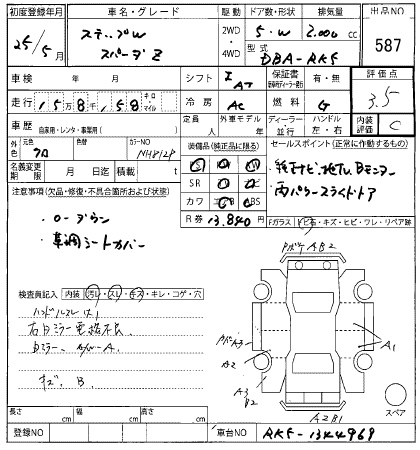 初度登録年月 車名・グレード 駆動 ドア数・形状 排気量 出品NO
25/5月 ステップW スパーダZ 2WD・4WD 5・W 2,000 cc 587
型式 DBA-RK5
車検 年 月 シフト I AT 保証書 有・無 評価点 3.5
走行 15万8千158 キロ・マイル 冷房 AC 燃料 G
車歴 自家用・レンタ・事業用( ) 定員 人 外車モデル 年 ディーラー 並行 ハンドル 左・右 内装評価 C
外色 元色 クロ 色替 カラーNO NH812P
装備品(純正品に限る)
SR
カワ
セールスポイント(正常に作動するもの)
純正ナビ、地デジ、Bモニター
両パワースライドドア
名義変更期限 月 日迄 積載 t
R券 13,840 円
注意事項(欠品・修復・不具合箇所および状態)
ローダウン
革調シートカバー
Fガラス トビ石・キズ・ヒビ・ワレ・リペア跡
検査員記入 内装 汚レ・スレ・キズ・キレ・コゲ・穴
ハンドルスレ
右ミラー電格不良
キズ B
A2
A3
B2
A1
A2B1
スペア
長さ cm 幅 cm 高さ cm
登録NO 車台NO RK5-1344969